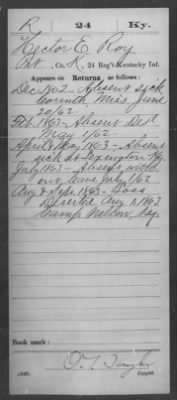 R 24 Ky.
Hector E. Roy
Pvt, Co. K, 24 Reg't Kentucky Inf.
Appears on Returns as follows:
Dec 1862 - Absent sick
Corinth Miss June
20/62
Feb. 1863 - Absent Det
May 1/62
April & May 1863 - Absent
sick at Lexington Ky
July 1863 - Absent with
out leave July 1/62
Aug & Sept. 1863 - Loss
Deserted Aug 2 1863
Camp Nelson, Ky.
Book mark:
O. T. Taylor
Copyist.